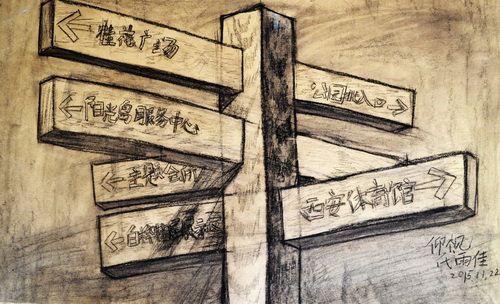 花广场
公园北入口
阳光岛服务中心
主题会所
西安体育馆
仰视
代雨佳
2015.11.22